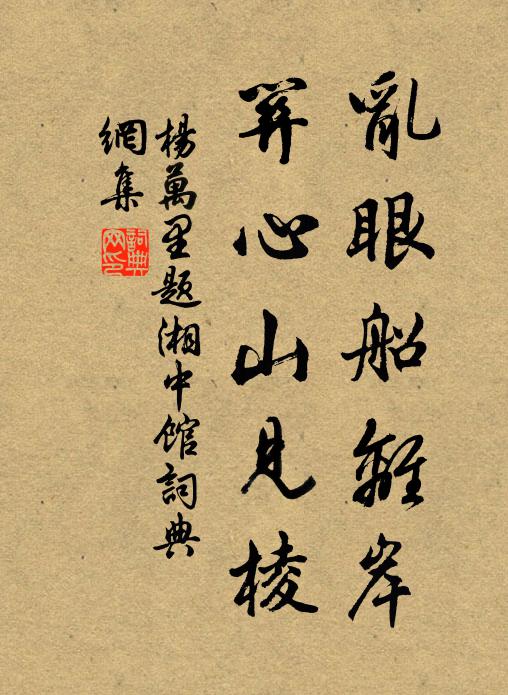 亂眼船離岸
開心山見棱
楊萬里題湘中館詞典
網集
詞典網印